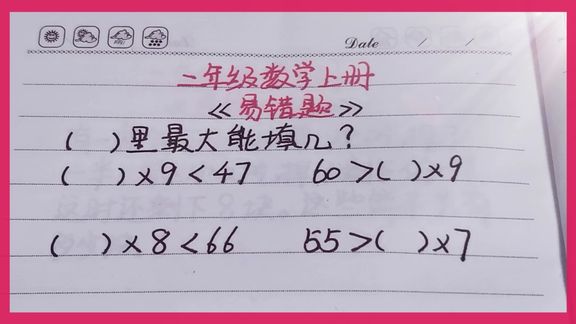 Date / /
二年级数学上册
《易错题》
( )里最大能填几?
( )×9<47 60>( )×9
( )×8<66 55>( )×7